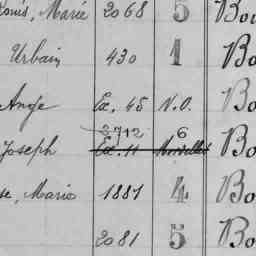 Louis, Marie 2068 5 Bou
Urbain 430 1 Bo
Ange Ex. 45 N.O. Bo
2712 6
Joseph Ex. 11 Bo
se, Marie 1881 4 Bo
2081 5 Bo